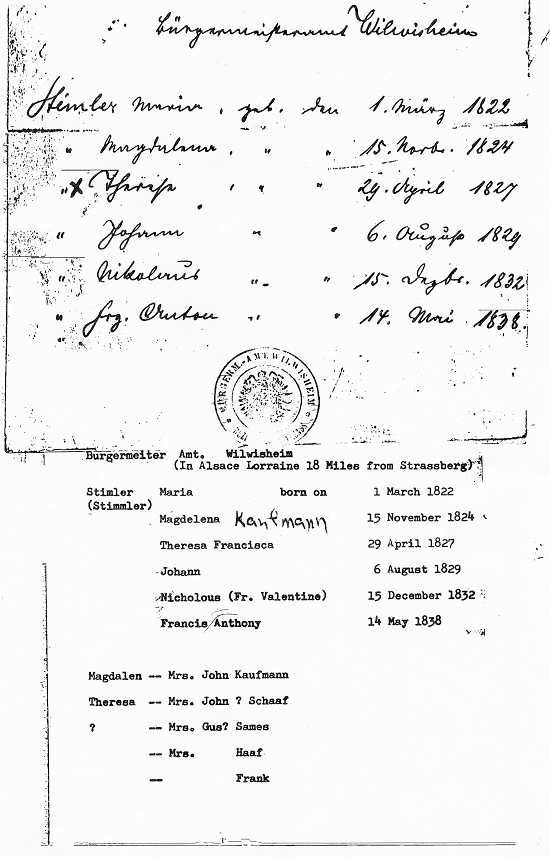 Bürgermeisteramt Wilwisheim
Stimler Maria, geb. den 1. März 1822
" Magdalena, " " 15. Novbr. 1824
" X Therese, " " 29. April 1827
" Johann " " 6. August 1829
" Nikolaus " " 15. Dezbr. 1832
" Frz. Anton " " 14. Mai 1838.
BÜRGERM.-AMT WILWISHEIM
Burgermeiter Amt. Wilwisheim
(In Alsace Lorraine 18 Miles from Strassberg)
Stimler Maria born on 1 March 1822
(Stimmler)
Magdelena Kaufmann 15 November 1824
Theresa Francisca 29 April 1827
Johann 6 August 1829
Nicholous (Fr. Valentine) 15 December 1832
Francis Anthony 14 May 1838
Magdalen -- Mrs. John Kaufmann
Theresa -- Mrs. John ? Schaaf
? -- Mrs. Gus? Sames
-- Mrs. Haaf
-- Frank